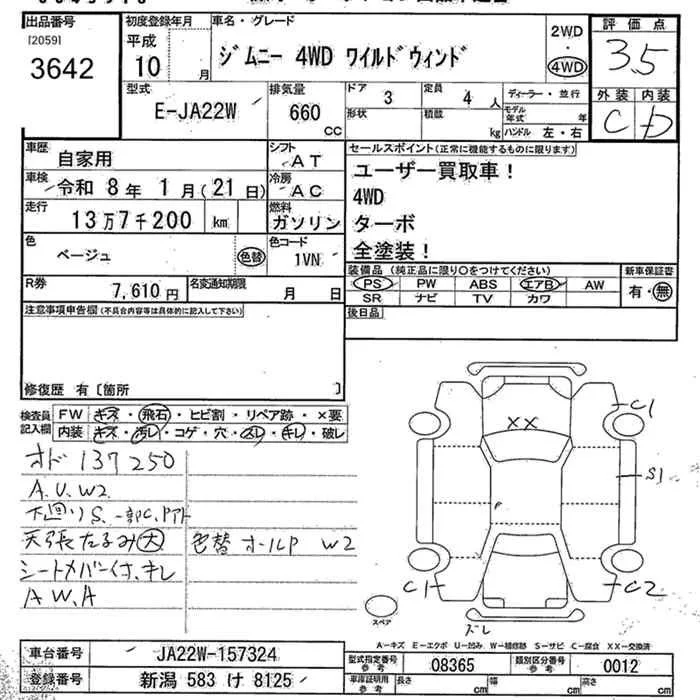 出品番号
[2059]
3642
初度登録年月
平成
10 月
車名・グレード
ジムニー 4WD ワイルドウィンド
2WD
・
4WD
評価点
3.5
外装 内装
C D
型式
E-JA22W
排気量
660
CC
ドア
3
定員
4 人
形状
積載
kg
ディーラー・並行
モデル年式 年
ハンドル 左・右
車歴
自家用
シフト
AT
車検
令和 8年 1月(21日)
冷房
AC
走行
13万7千200 km
燃料
ガソリン
色
ベージュ
色替
色コード
1VN
R券
7,610円
名変通知期限
月 日
セールスポイント(正常に機能するものに限ります)
ユーザー買取車!
4WD
ターボ
全塗装!
装備品(純正品に限り○をつけてください)
PS PW ABS エアB AW
SR ナビ TV カワ
新車保証書
有・無
後日品
注意事項申告欄(不具合内容等は具体的に記入して下さい)
修復歴 有〔箇所 〕
検査員記入欄
FW キズ・飛石・ヒビ割・リペア跡・×要
内装 キズ・汚レ・コゲ・穴・スレ・キレ・破レ
オド 137250
A.U.W2
下回りS.一部C.Pアト
天張たるみ大
色替 オールP W2
シートメバーイオ.キレ
A W.A
XX
C1
S1
C1
C2
ズレ
スペア
A-キズ E-エクボ U-凹み W-補修跡 S-サビ C-腐食 XX-交換済
車台番号
JA22W-157324
登録番号
新潟 583 け 8125
型式指定番号
参考
08365
類別区分番号
参考
0012
車庫証明用
参考
長さ cm
幅 cm
高さ cm